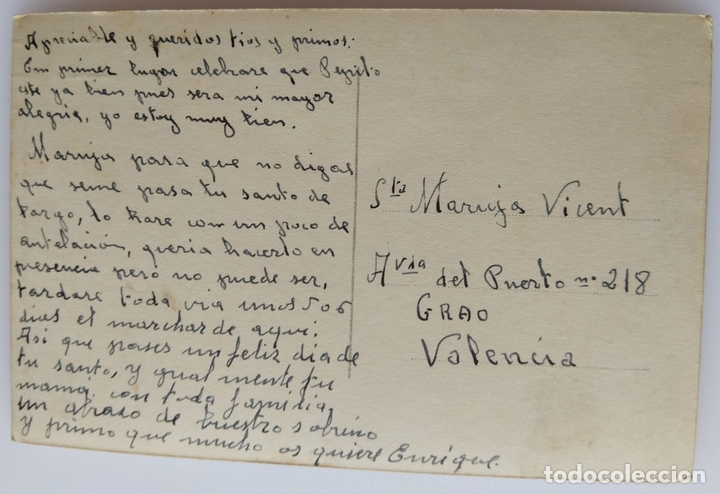 Apreciable y queridos tios y primos:
Em primer lugar celebrare que Pepito
este ya bien pues sera mi mayor
alegria, yo estoy muy bien.
Maruja para que no digas
que seme pasa tu santo de
largo, lo hare con un poco de
antelación, queria hacerlo en
presencia pero no puede ser,
tardare toda via unos 5 o 6
dias el marchar de aqui.
Asi que pases un feliz dia de
tu santo, y gual mente tu
mamá con toda familia,
un abrazo de buestro sobrino
y primo que mucho os quiere Enrique.
Sta Maruja Vicent
Avda del Puerto nº 218
GRAO
Valencia
todocoleccion.net